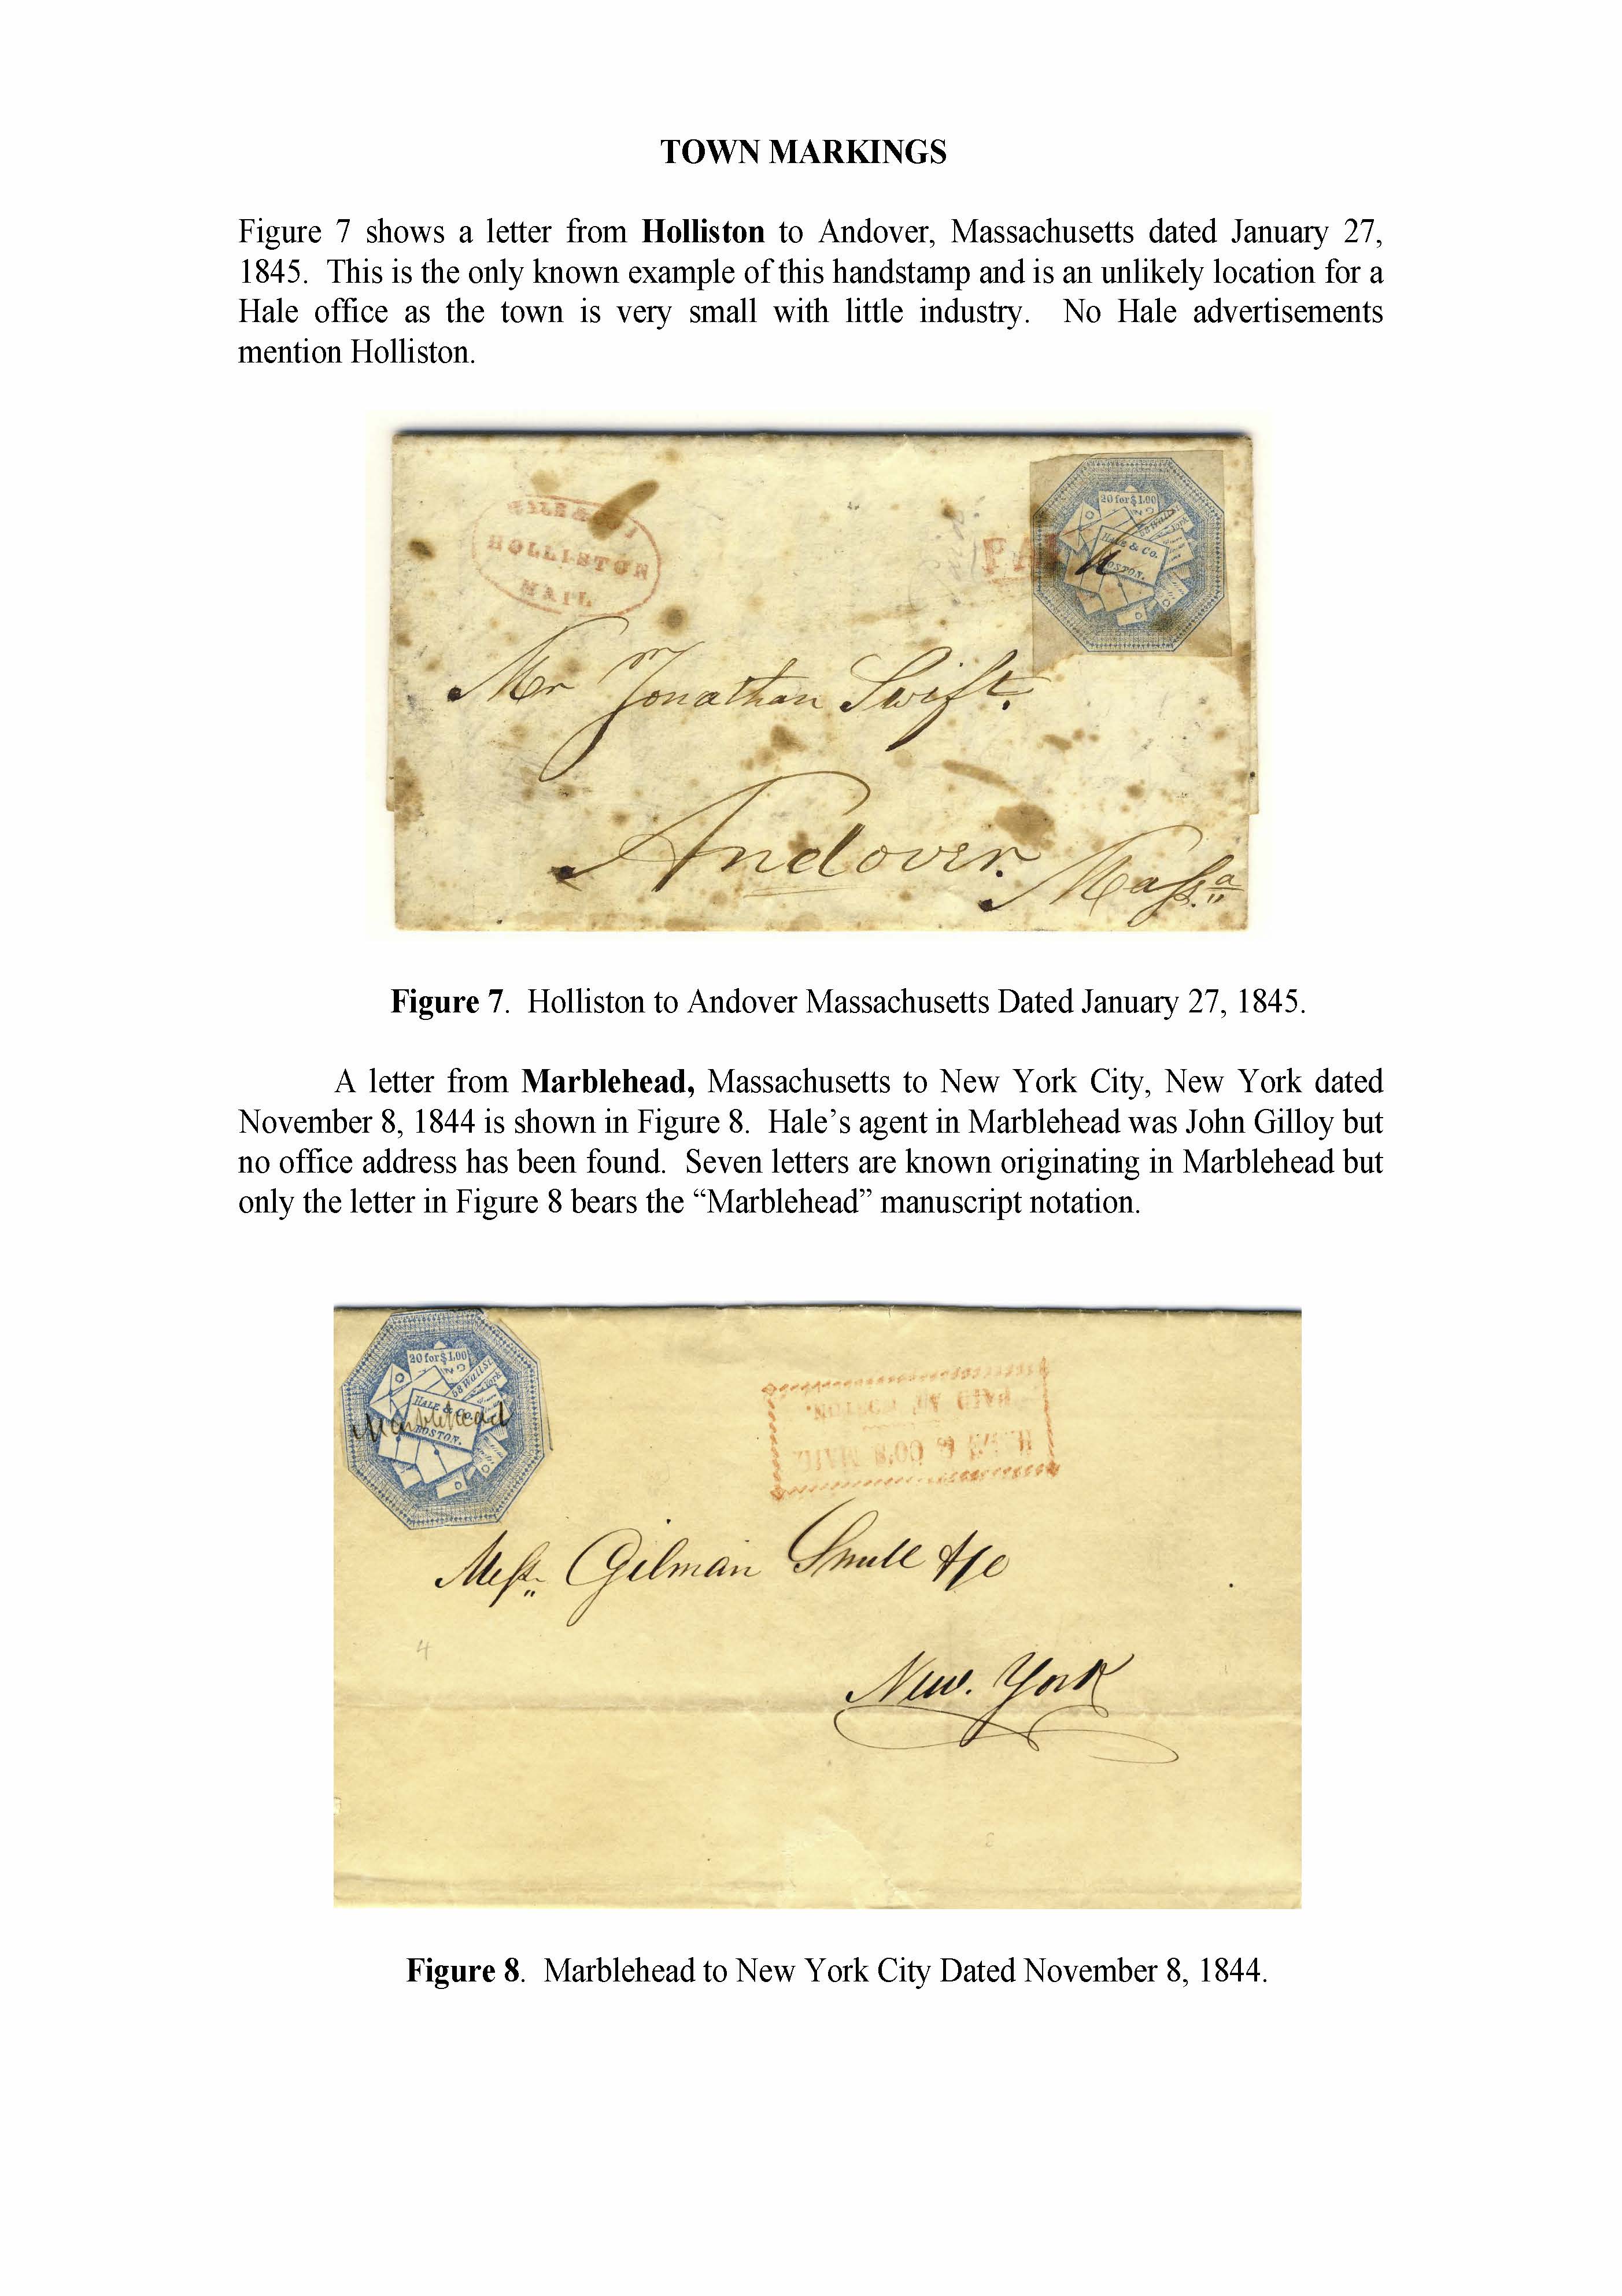 TOWN MARKINGS
Figure 7 shows a letter from Holliston to Andover, Massachusetts dated January 27,
1845. This is the only known example of this handstamp and is an unlikely location for a
Hale office as the town is very small with little industry. No Hale advertisements
mention Holliston.
HALE & CO'S
HOLLISTON
MAIL
20 for $1.00
Hale & Co.
BOSTON.
Mr Jonathan Swift.
Andover. Massa
Figure 7. Holliston to Andover Massachusetts Dated January 27, 1845.
A letter from Marblehead, Massachusetts to New York City, New York dated
November 8, 1844 is shown in Figure 8. Hale's agent in Marblehead was John Gilloy but
no office address has been found. Seven letters are known originating in Marblehead but
only the letter in Figure 8 bears the “Marblehead” manuscript notation.
20 for $1.00
58 Wall St.
New York
HALE & Co.
BOSTON.
Marblehead
HALE & CO'S MAIL
PAID AT BOSTON.
Messrs Gilman Smull & Co
4
New. York
Figure 8. Marblehead to New York City Dated November 8, 1844.